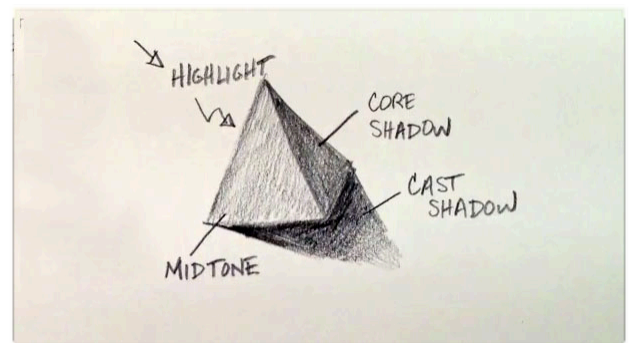 HIGHLIGHT
CORE
SHADOW
CAST
SHADOW
MIDTONE